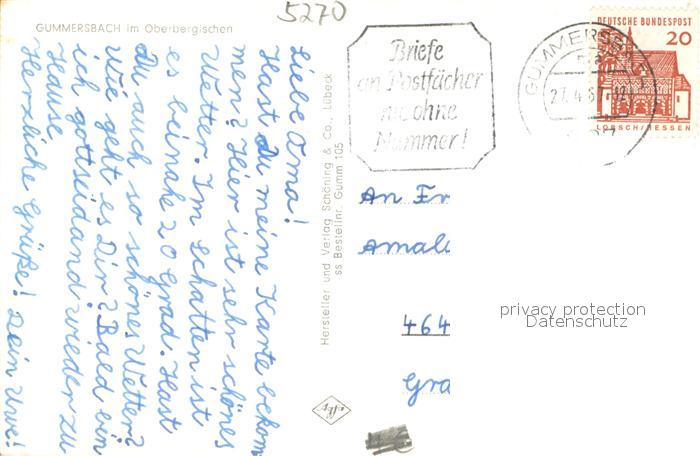 5270
GUMMERSBACH im Oberbergischen
Liebe Oma!
Hast Du meine Karte bekom
men? Hier ist sehr schönes
Wetter. Im Schatten ist
es beinahe 20 Grad. Hast
Du auch so schönes Wetter?
Wie geht es Dir? Bald bin
ich gottseidand wieder zu
Hause.
Herzliche Grüße! Dein Uwe!
Hersteller und Verlag Schöning & Co., Lübeck
ss Bestellnr. Gumm 105
Briefe
an Postfächer
nie ohne
Nummer!
GUMMERSBACH
DEUTSCHE BUNDESPOST
20
LORSCH/HESSEN
An Fr
Amal
464
Gra
privacy protection
Datenschutz